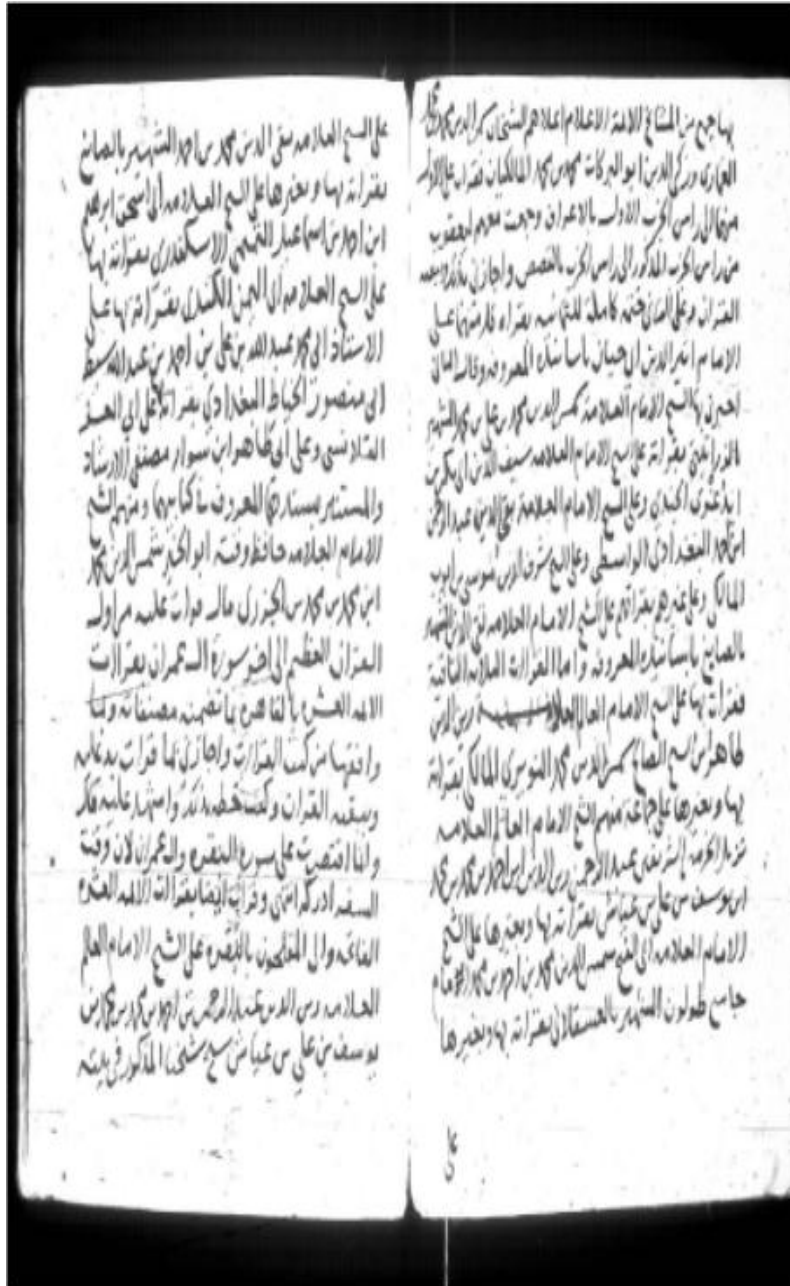 بها جمع من المشايخ الائمة الاعلام اعلاهم الشيخان شمس الدين محمد
الغماري وزكي الدين ابو البركات محمد بن محمد المالكيان فقرات على الاول
منهما الى راس الحزب الاول بالاعراف وجمعت معهم ليعقوب
من راس الحزب المذكور الى راس الحزب بالقصص واجازني
القران وعلى الثاني ختمة كاملة للثمانية بقراءة كل منهما على
الامام اثير الدين ابي حيان باسانيده المعروفة وقال الثاني
اخبرني بها الشيخ الامام العلامة شمس الدين محمد بن علي بن محمد الشهير
بقراته على الشيخ الامام العلامة سيف الدين ابي بكر بن
ايدغدي الجندي وعلى الشيخ الامام العلامة تقي الدين عبد الرحمن
ابن احمد البغدادي الواسطي وعلى الشيخ شرف الدين موسى بن ايوب
المالكي وعلى غيرهم بقراتهم على الشيخ الامام العلامة تقي الدين الشهير
بالصايغ باسانيده المعروفة واما القراات الثلاثة الباقية
فقرات بها على الشيخ الامام العالم العلامة زين الدين
طاهر ابن الشيخ الصالح شمس الدين محمد النويري المالكي بقراته
بها وبغيرها على جماعة منهم الشيخ الامام العالم العلامة
عبد الرحمن زين الدين ابن احمد بن محمد بن محمد
ابن يوسف بن علي بن عياش بقراته بها وبغيرها على الشيخ
الامام العلامة ابي الفتح شمس الدين محمد بن احمد بن محمد امام
جامع طولون الشهير بالعسقلاني بقراته بها وبغيرها
على
على الشيخ العلامة تقي الدين محمد بن احمد الشهير بالصايغ
بقراته بها وبغيرها على الشيخ العلامة ابي اسحق ابرهيم
ابن احمد بن اسماعيل التميمي الاسكندري بقراته بها
على الشيخ العلامة ابي اليمن الكندي بقراته بها على
الاستاذ ابي محمد عبد الله بن علي بن احمد بن عبد الله سبط
ابي منصور الخياط البغدادي بقراته على ابي العز
القلانسي وعلى ابي طاهر ابن سوار مصنفي الارشاد
والمستنير بسندهما المعروف بكتابيهما ومنهم الشيخ
الامام العلامة حافظ وقته ابو الخير شمس الدين محمد
ابن محمد بن محمد بن الجزري قال قرات عليه من اول
القران العظيم الى اخر سورة ال عمران بقراات
الائمة العشرة بالقاهرة بما تضمنه مصنفاته وما
وافقها من كتب القراات واجازني بما قرات به عليه
وببقية القران وكتب خطه بذلك واشهد عليه قال
وانما اقتصرت على سورة البقرة وال عمران لان وقت
السفر ادركه انتهى وقرات ايضا بقراات الائمة العشرة
الفاتحة والى المفلحون بالبقرة على الشيخ الامام العالم
العلامة زين الدين عبد الرحمن بن احمد بن محمد بن محمد بن
يوسف بن علي بن عياش شيخ شيخنا المذكور في بلدته